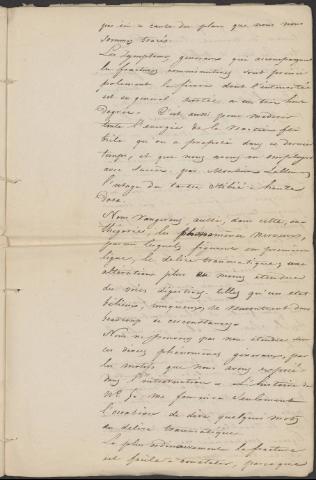 pas ici a cause du plan que nous nous
sommes tracés.
Les symptômes généraux qui accompagnent
les fractures comminutives sont princi
palement la fièvre dont l'intensité
est en général portée a un très haut
degrée. C'est aussi pour modérer
toute l'énergie de la réaction fé
brile qu'on a proposée dans ces derniers
temps, et que nous avons vu employer
avec succès, par Monsieur
l'usage du tartre stibié a haute
dose.
Nous rangeons aussi, dans cette ca
thégorie, les phénomènes nerveux,
parmi lesquels figurent en première
ligne, le délire traumatique; une
altération plus ou moins étendue
des voies digestives. telles qu'un état
bilieux, muqueux, se rencontrent dans
beaucoup de circonstances.
Nous ne pouvons pas nous étendre sur
ces divers phénomènes généraux, par
les motifs que nous avons exposés
dans l'introduction. L'histoire du
N°. 5. me fournira seulement
l'occasion de dire quelques mots
du délire traumatique.
Le plus ordinairement la fracture
est facile a constater, parceque